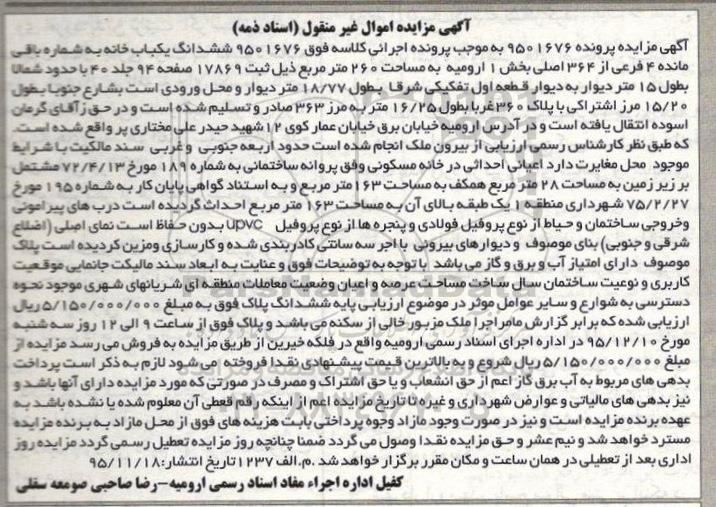 آگهی مزایده اموال غیر منقول (اسناد ذمه)
آگهی مزایده پرونده ۹۵۰۱۶۷۶ به موجب پرونده اجرائی کلاسه فوق ۹۵۰۱۶۷۶ ششدانگ یکباب خانه به شماره باقی
مانده ۴ فرعی از ۳۶۴ اصلی بخش ۱ ارومیه به مساحت ۲۶۰ متر مربع ذیل ثبت ۱۷۸۶۹ صفحه ۹۴ جلد ۴۰ با حدود شمالا
بطول ۱۵ متر دیوار به دیوار قطعه اول تفکیکی شرقا بطول ۱۸/۷۷ متر دیوار و محل ورودی است بشارع جنوبا بطول
۱۵/۲۰ مرز اشتراکی با پلاک ۳۶۰ غربا بطول ۱۶/۲۵ متر به مرز ۳۶۳ صادر و تسلیم شده است و در حق زآقای گرمان
اسوده انتقال یافته است و در آدرس ارومیه خیابان برق خیابان عمار کوی ۱۲ شهید حیدر علی مختاری پر واقع شده است.
که طبق نظر کارشناس رسمی ارزیابی از بیرون ملک انجام شده است حدود اربعه جنوبی و غربی سند مالکیت با شرایط
موجود محل مغایرت دارد اعیانی احداثی در خانه مسکونی وفق پروانه ساختمانی به شماره ۱۸۹ مورخ ۷۲/۴/۱۳ مشتمل
بر زیر زمین به مساحت ۲۸ متر مربع همکف به مساحت ۱۶۳ متر مربع و به استناد گواهی پایان کار به شماره ۱۹۵ مورخ
۷۵/۲/۲۷ شهرداری منطقه ۱ یک طبقه بالای آن به مساحت ۱۶۳ متر مربع احداث گردیده است درب های پیرامونی
وخروجی ساختمان و حیاط از نوع پروفیل فولادی و پنجره ها از نوع پروفیل upvc بدون حفاظ است نمای اصلی (اضلاع
شرقی و جنوبی) بنای موصوف و دیوارهای بیرونی با اجر سه سانتی کادربندی شده و کارسازی ومزین کردیده است پلاک
موصوف دارای امتیاز آب و برق و گاز می باشد با توجه به توضیحات فوق و عنایت به ابعاد سند مالیکت جانمایی موقعیت
کاربری و نوعیت ساختمان سال ساخت مساحت عرصه و اعیان وضعیت معاملات منطقه ای شریانهای شهری موجود نحوه
دسترسی به شوارع و سایر عوامل موثر در موضوع ارزیابی پایه ششدانگ پلاک فوق به مبلغ ۵/۱۵۰/۰۰۰/۰۰۰ ریال
ارزیابی شده که برابر گزارش مامر اجرا ملک مزبور خالی از سکنه می باشد و پلاک فوق از ساعت ۹ الی ۱۲ روز سه شنبه
مورخ ۹۵/۱۲/۱۰ در اداره اجرای اسناد رسمی ارومیه واقع در فلکه خیرین از طریق مزایده به فروش می رسد مزایده از
مبلغ ۵/۱۵۰/۰۰۰/۰۰۰ ریال شروع و به بالاترین قیمت پیشنهادی نقدا فروخته می شود لازم به ذکر است پرداخت
بدهی های مربوط به آب برق گاز اعم از حق انشعاب و یا حق اشتراک و مصرف در صورتی که مورد مزایده دارای آنها باشد و
نیز بدهی های مالیاتی و عوارض شهرداری و غیره تا تاریخ مزایده اعم از اینکه رقم قعطی آن معلوم شده یا نشده باشد به
عهده برنده مزایده است و نیز در صورت وجود مازاد وجوه پرداختی بابت هزینه های فوق از محل مازاد به برنده مزایده
مسترد خواهد شد و نیم عشر و حق مزایده نقدا وصول می گردد ضمنا چنانچه روز مزایده تعطیل رسمی گردد مزایده روز
اداری بعد از تعطیلی در همان ساعت و مکان مقرر برگزار خواهد شد .م.الف ۱۲۳۷ تاریخ انتشار: ۹۵/۱۱/۱۸
کفیل اداره اجراء مفاد اسناد رسمی ارومیه-رضا صاحبی صومعه سفلی